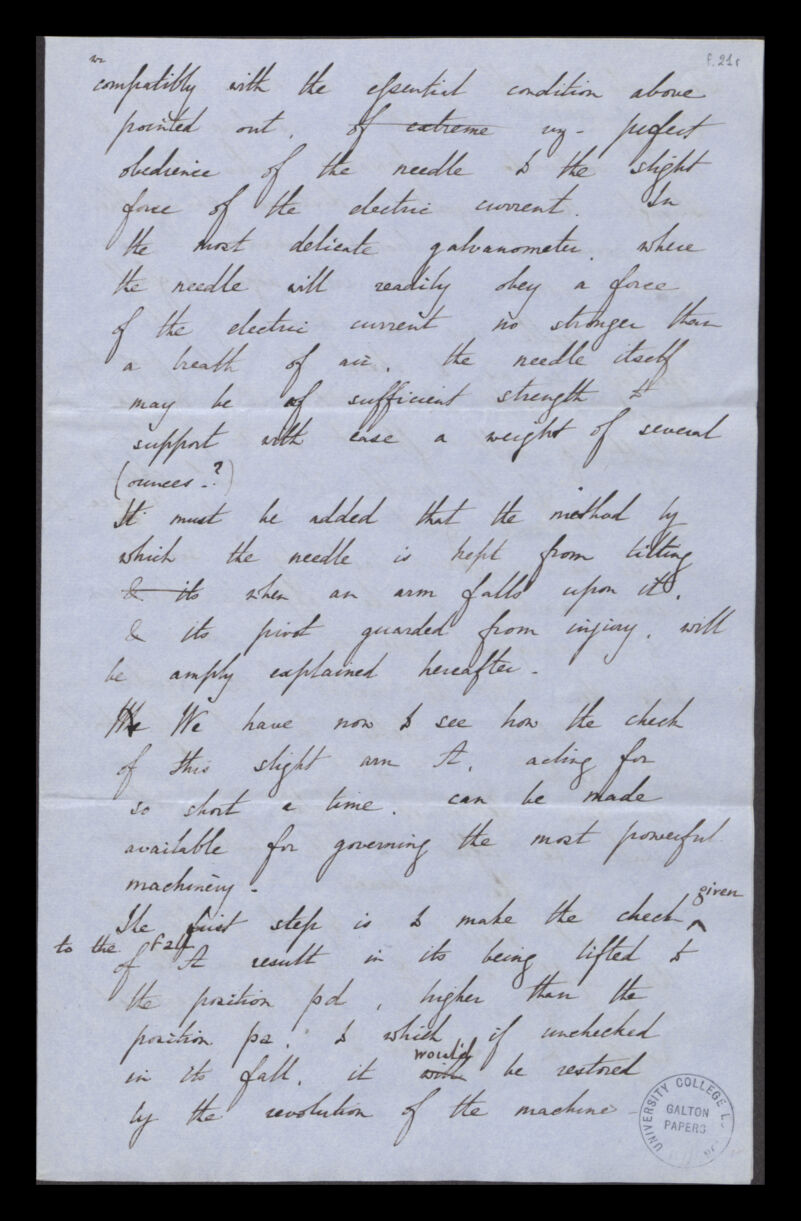 f.21r
compatibly with the essential condition above
pointed out, of extreme viz - perfect
obedience of the needle to the slight
force of the electric current. In
the most delicate galvanometer, where
the needle will readily obey a force
of the electric current no stronger than
a breath of air, the needle itself
may be of sufficient strength to
support with ease a weight of several
(ounces -?)
It must be added that the method by
which the needle is kept from tilting
& its when an arm falls upon it,
& its pivot guarded from injury, will
be amply explained hereafter -
We have now to see how the check
of this slight arm A, acting for
so short a time, can be made
available for governing the most powerful
machinery -
given
The first step is to make the check
to the fall
of A result in its being lifted to
the position pd, higher than the
position pa, to which if unchecked
would
in its fall, it will be restored
by the revolution of the machine -
UNIVERSITY COLLEGE
GALTON
PAPERS